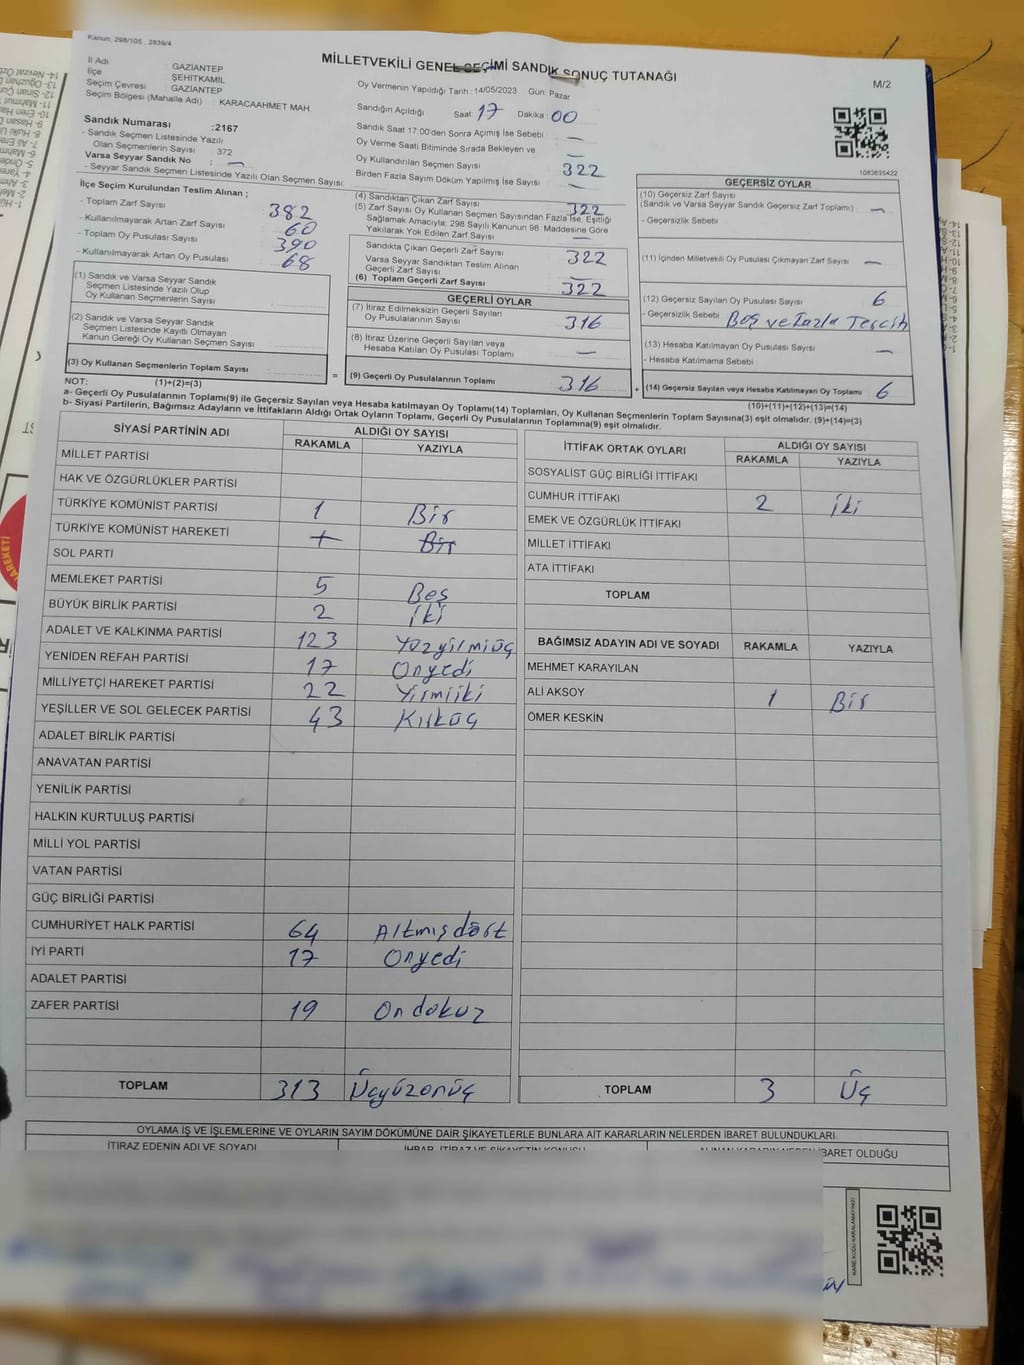 Kanun, 298/105 , 2839/4
MİLLETVEKİLİ GENEL SEÇİMİ SANDIK SONUÇ TUTANAĞI
M/2
İl Adı GAZİANTEP
İlçe ŞEHİTKAMİL
Seçim Çevresi GAZİANTEP
Seçim Bölgesi (Mahalle Adı) : KARACAAHMET MAH.
Sandık Numarası :2167
- Sandık Seçmen Listesinde Yazılı
Olan Seçmenlerin Sayısı 372
Varsa Seyyar Sandık No : —
- Seyyar Sandık Seçmen Listesinde Yazılı Olan Seçmen Sayısı
Oy Vermenin Yapıldığı Tarih :14/05/2023 Gün: Pazar
Sandığın Açıldığı Saat: 17 Dakika 00
Sandık Saat 17:00'den Sonra Açılmış İse Sebebi —
Oy Verme Saati Bitiminde Sırada Bekleyen ve
Oy Kullandırılan Seçmen Sayısı —
322
Birden Fazla Sayım Döküm Yapılmış İse Sayısı —
1083635422
İlçe Seçim Kurulundan Teslim Alınan ;
- Toplam Zarf Sayısı 382
- Kullanılmayarak Artan Zarf Sayısı 60
- Toplam Oy Pusulası Sayısı 390
- Kullanılmayarak Artan Oy Pusulası 68
(1) Sandık ve Varsa Seyyar Sandık
Seçmen Listesinde Yazılı Olup
Oy Kullanan Seçmenlerin Sayısı
(2) Sandık ve Varsa Seyyar Sandık
Seçmen Listesinde Kayıtlı Olmayan
Kanun Gereği Oy Kullanan Seçmen Sayısı
(3) Oy Kullanan Seçmenlerin Toplam Sayısı
(4) Sandıktan Çıkan Zarf Sayısı 322
(5) Zarf Sayısı Oy Kullanan Seçmen Sayısından Fazla İse, Eşitliği
Sağlamak Amacıyla; 298 Sayılı Kanunun 98. Maddesine Göre
Yakılarak Yok Edilen Zarf Sayısı —
Sandıkta Çıkan Geçerli Zarf Sayısı 322
Varsa Seyyar Sandıktan Teslim Alınan
Geçerli Zarf Sayısı —
(6) Toplam Geçerli Zarf Sayısı 322
GEÇERLİ OYLAR
(7) İtiraz Edilmeksizin Geçerli Sayılan
Oy Pusulalarının Sayısı 316
(8) İtiraz Üzerine Geçerli Sayılan veya
Hesaba Katılan Oy Pusulası Toplamı —
= (9) Geçerli Oy Pusulalarının Toplamı 316
GEÇERSİZ OYLAR
(10) Geçersiz Zarf Sayısı
(Sandık ve Varsa Seyyar Sandık Geçersiz Zarf Toplamı) —
- Geçersizlik Sebebi
(11) İçinden Milletvekili Oy Pusulası Çıkmayan Zarf Sayısı —
(12) Geçersiz Sayılan Oy Pusulası Sayısı 6
- Geçersizlik Sebebi Boş ve Fazla Tercih
(13) Hesaba Katılmayan Oy Pusulası Sayısı —
- Hesaba Katılmama Sebebi
+ (14) Geçersiz Sayılan veya Hesaba Katılmayan Oy Toplamı 6
NOT: (1)+(2)=(3)
(10)+(11)+(12)+(13)=(14)
a- Geçerli Oy Pusulalarının Toplamı(9) ile Geçersiz Sayılan veya Hesaba katılmayan Oy Toplamı(14) Toplamları, Oy Kullanan Seçmenlerin Toplam Sayısına(3) eşit olmalıdır. (9)+(14)=(3)
b- Siyasi Partilerin, Bağımsız Adayların ve İttifakların Aldığı Ortak Oyların Toplamı, Geçerli Oy Pusulalarının Toplamına(9) eşit olmalıdır.
SİYASİ PARTİNİN ADI ALDIĞI OY SAYISI
RAKAMLA YAZIYLA
MİLLET PARTİSİ
HAK VE ÖZGÜRLÜKLER PARTİSİ
TÜRKİYE KOMÜNİST PARTİSİ 1 Bir
TÜRKİYE KOMÜNİST HAREKETİ 1 Bir
SOL PARTİ
MEMLEKET PARTİSİ 5 Beş
BÜYÜK BİRLİK PARTİSİ 2 iki
ADALET VE KALKINMA PARTİSİ 123 Yüzyirmiüç
YENİDEN REFAH PARTİSİ 17 Onyedi
MİLLİYETÇİ HAREKET PARTİSİ 22 Yirmiiki
YEŞİLLER VE SOL GELECEK PARTİSİ 43 Kırküç
ADALET BİRLİK PARTİSİ
ANAVATAN PARTİSİ
YENİLİK PARTİSİ
HALKIN KURTULUŞ PARTİSİ
MİLLİ YOL PARTİSİ
VATAN PARTİSİ
GÜÇ BİRLİĞİ PARTİSİ
CUMHURİYET HALK PARTİSİ 64 Altmışdört
İYİ PARTİ 17 Onyedi
ADALET PARTİSİ
ZAFER PARTİSİ 19 Ondokuz
TOPLAM 313 Üçyüzonüç
İTTİFAK ORTAK OYLARI ALDIĞI OY SAYISI
RAKAMLA YAZIYLA
SOSYALİST GÜÇ BİRLİĞİ İTTİFAKI
CUMHUR İTTİFAKI 2 iki
EMEK VE ÖZGÜRLÜK İTTİFAKI
MİLLET İTTİFAKI
ATA İTTİFAKI
TOPLAM
BAĞIMSIZ ADAYIN ADI VE SOYADI RAKAMLA YAZIYLA
MEHMET KARAYILAN
ALİ AKSOY 1 Bir
ÖMER KESKİN
TOPLAM 3 Üç
OYLAMA İŞ VE İŞLEMLERİNE VE OYLARIN SAYIM DÖKÜMÜNE DAİR ŞİKAYETLERLE BUNLARA AİT KARARLARIN NELERDEN İBARET BULUNDUKLARI
İTİRAZ EDENİN ADI VE SOYADI İHBAR, İTİRAZ VE ŞİKAYETİN KONUSU ALINAN KARARIN NEDEN İBARET OLDUĞU
KARE KODU KARALAMAYINIZ!